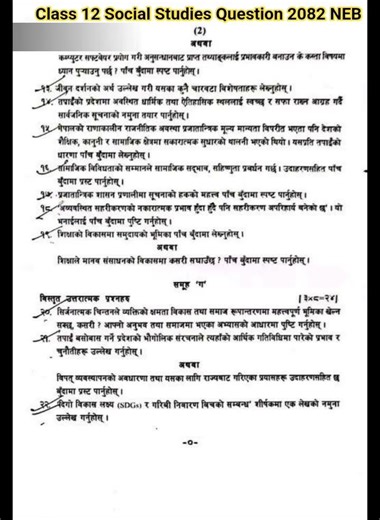 Class 12 Social Studies Question 2082 NEB
(2)
अथवा
कम्प्युटर सफ्टवेयर प्रयोग गरी अनुसन्धानबाट प्राप्त तथ्याङ्कलाई प्रभावकारी बनाउन के कस्ता विषयमा
ध्यान पुर्‍याउनु पर्छ ? पाँच बुँदामा स्पष्ट पार्नुहोस् ।
१३. जीवन दर्शनको अर्थ उल्लेख गरी यसका कुनै चारवटा विशेषताहरू लेख्नुहोस् ।
१४. तपाईंको प्रदेशमा अवस्थित धार्मिक तथा ऐतिहासिक स्थललाई स्वच्छ र सफा राख्न आग्रह गर्दै
सार्वजनिक सूचनाको नमुना तयार पार्नुहोस् ।
१५. नेपालको राणाकालीन राजनीतिक अवस्था प्रजातान्त्रिक मूल्य मान्यता विपरीत भएता पनि देशको
शैक्षिक, कानुनी र सामाजिक क्षेत्रमा सकारात्मक सुधारको थालनी भएको थियो । यसप्रति तपाईंको
धारणा पाँच बुँदामा लेख्नुहोस् ।
१६. सामाजिक विविधताको सम्मानले सामाजिक सद्‍भाव, सहिष्णुता प्रवर्धन गर्छ । उदाहरणसहित पाँच
बुँदामा प्रस्ट पार्नुहोस् ।
१७. प्रजातान्त्रिक शासन प्रणालीमा सूचनाको हकको महत्त्व पाँच बुँदामा स्पष्ट पार्नुहोस् ।
१८. 'अव्यवस्थित सहरीकरणको नकारात्मक प्रभाव हुँदा हुँदै पनि सहरीकरण अपरिहार्य बनेको छ' । यो
भनाईलाई पाँच बुँदामा पुष्टि गर्नुहोस् ।
१९. शिक्षाको विकासमा समुदायको भूमिका पाँच बुँदामा लेख्नुहोस् ।
अथवा
शिक्षाले मानव संसाधनको विकासमा कसरी सघाउँछ ? पाँच बुँदामा स्पष्ट पार्नुहोस् ।
समूह 'ग'
विस्तृत उत्तरात्मक प्रश्नहरू [३×८=२४]
२०. सिर्जनात्मक चिन्तनले व्यक्तिको क्षमता विकास तथा समाज रूपान्तरणमा महत्त्वपूर्ण भूमिका खेल्न
सक्छ, कसरी ? आफ्नो अनुभव तथा समाजमा भएका अभ्यासको आधारमा पुष्टि गर्नुहोस् ।
२१. तपाईं बसोबास गर्ने प्रदेशको भौगोलिक संरचनाले त्यहाँको आर्थिक गतिविधिमा पारेको प्रभाव र
चुनौतीहरू उल्लेख गर्नुहोस् ।
अथवा
विपत् व्यवस्थापनको अवधारणा तथा यसका लागि राज्यबाट गरिएका प्रयासहरू उदाहरणसहित छ
बुँदामा प्रस्ट पार्नुहोस् ।
२२. 'दिगो विकास लक्ष्य (SDGs) र गरिबी निवारण बिचको सम्बन्ध' शीर्षकमा एक लेखको नमुना
उल्लेख गर्नुहोस् ।
-०-